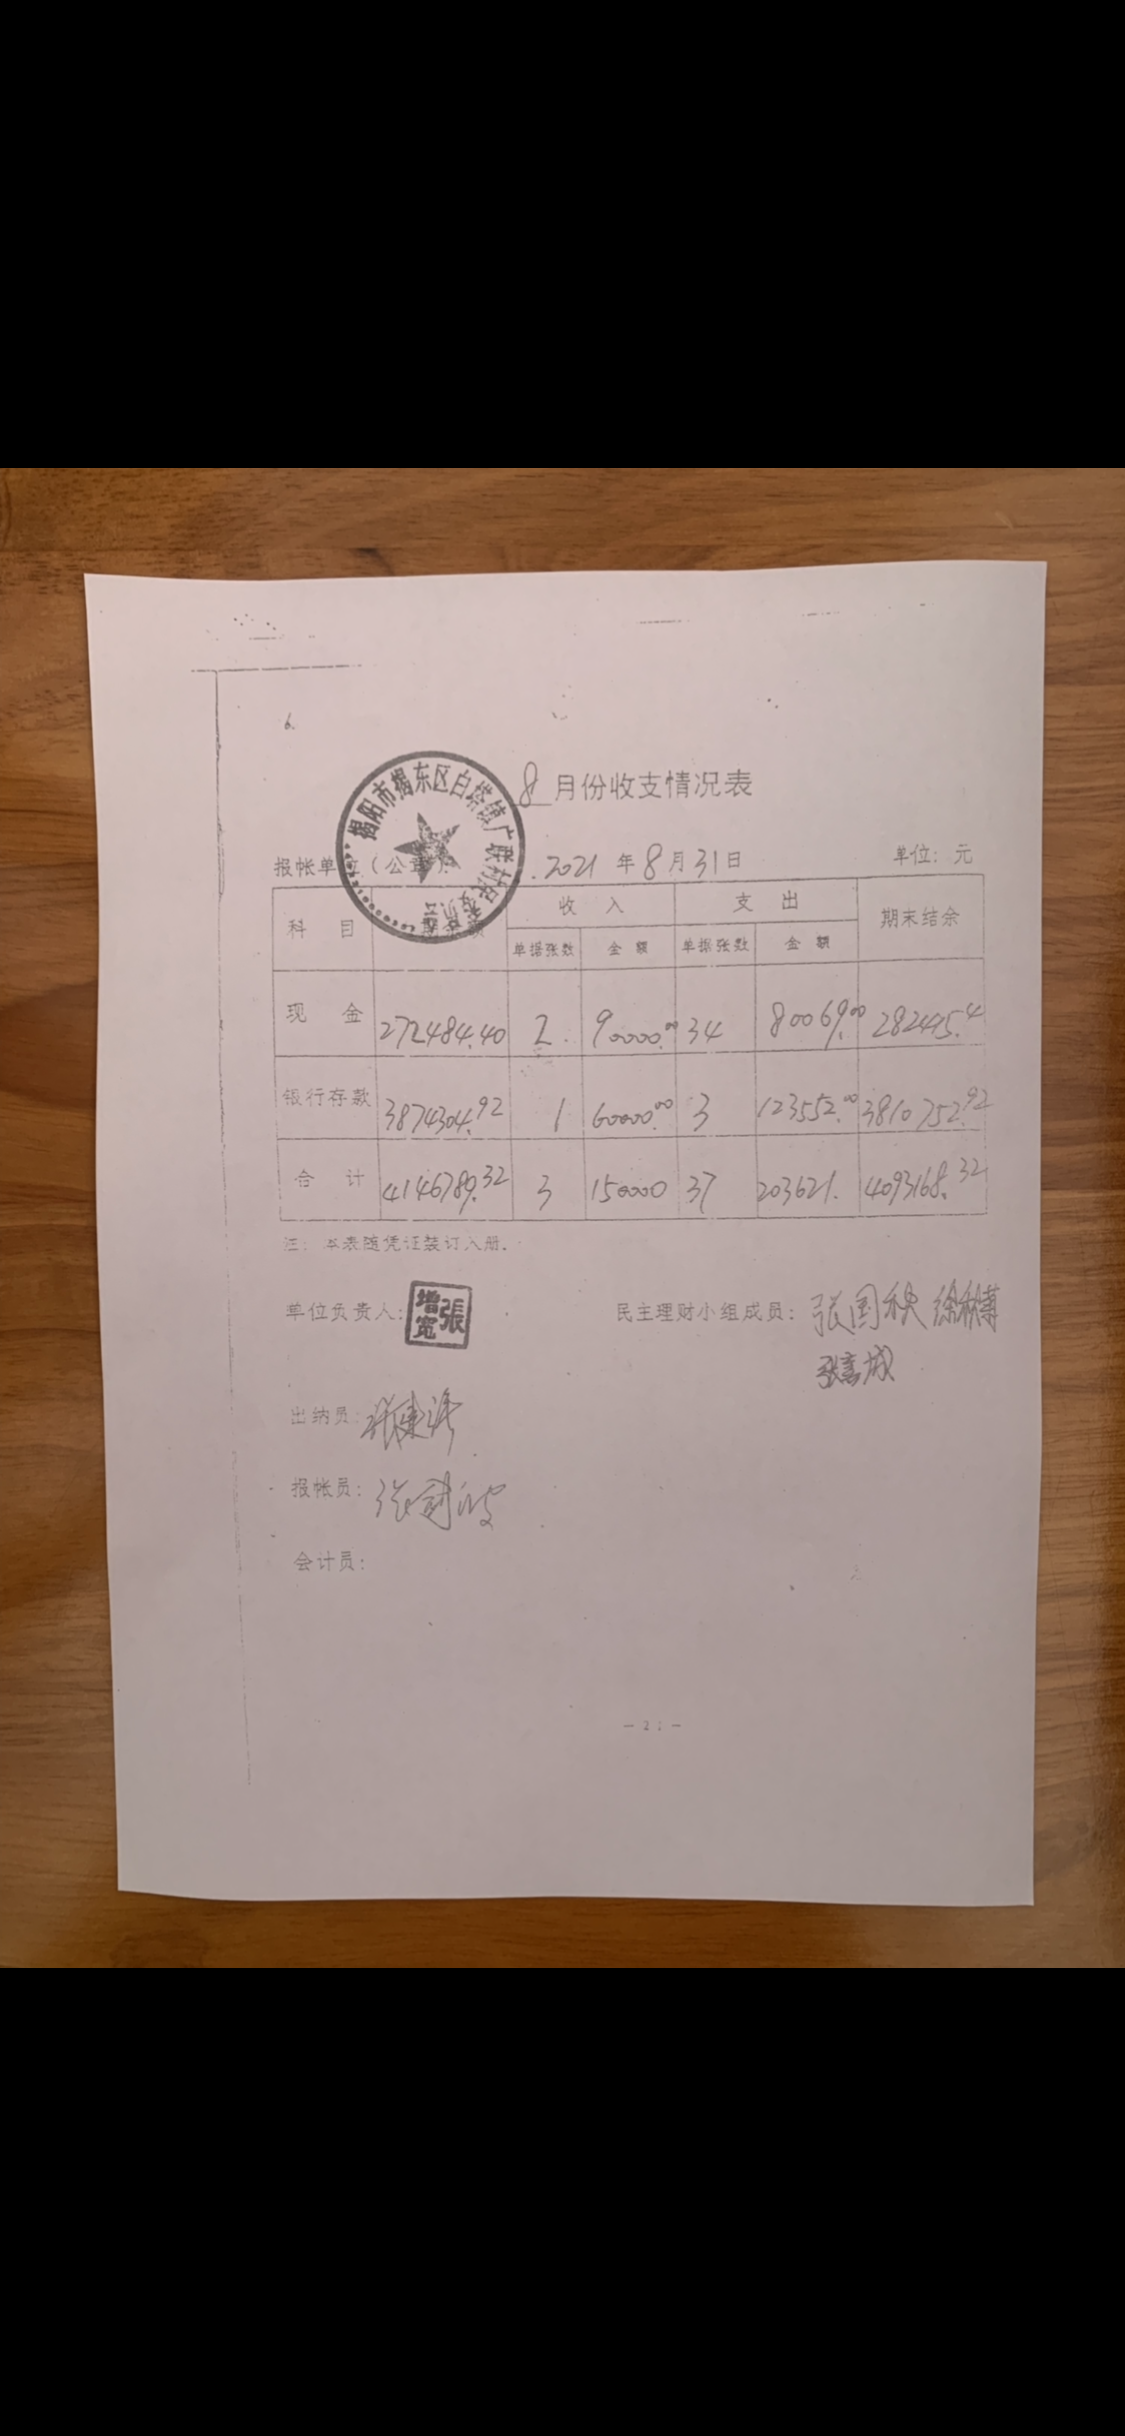 6.
8月份收支情况表
揭阳市揭东区白塔镇广联村民委员会
报帐单位（公章） 2021年8月31日 单位：元
科 目 收 入 支 出 期末结余
单据张数 金 额 单据张数 金 额
现 金 272484.40 2 90000.00 34 80069.00 282415.4
银行存款 3874304.92 1 60000.00 3 123552.00 3810752.92
合 计 4146789.32 3 150000 37 203621. 4093168.32
注：本表随凭证装订入册。
单位负责人：張增宽 民主理财小组成员：张国秧
出纳员：
报帐员：
会计员：